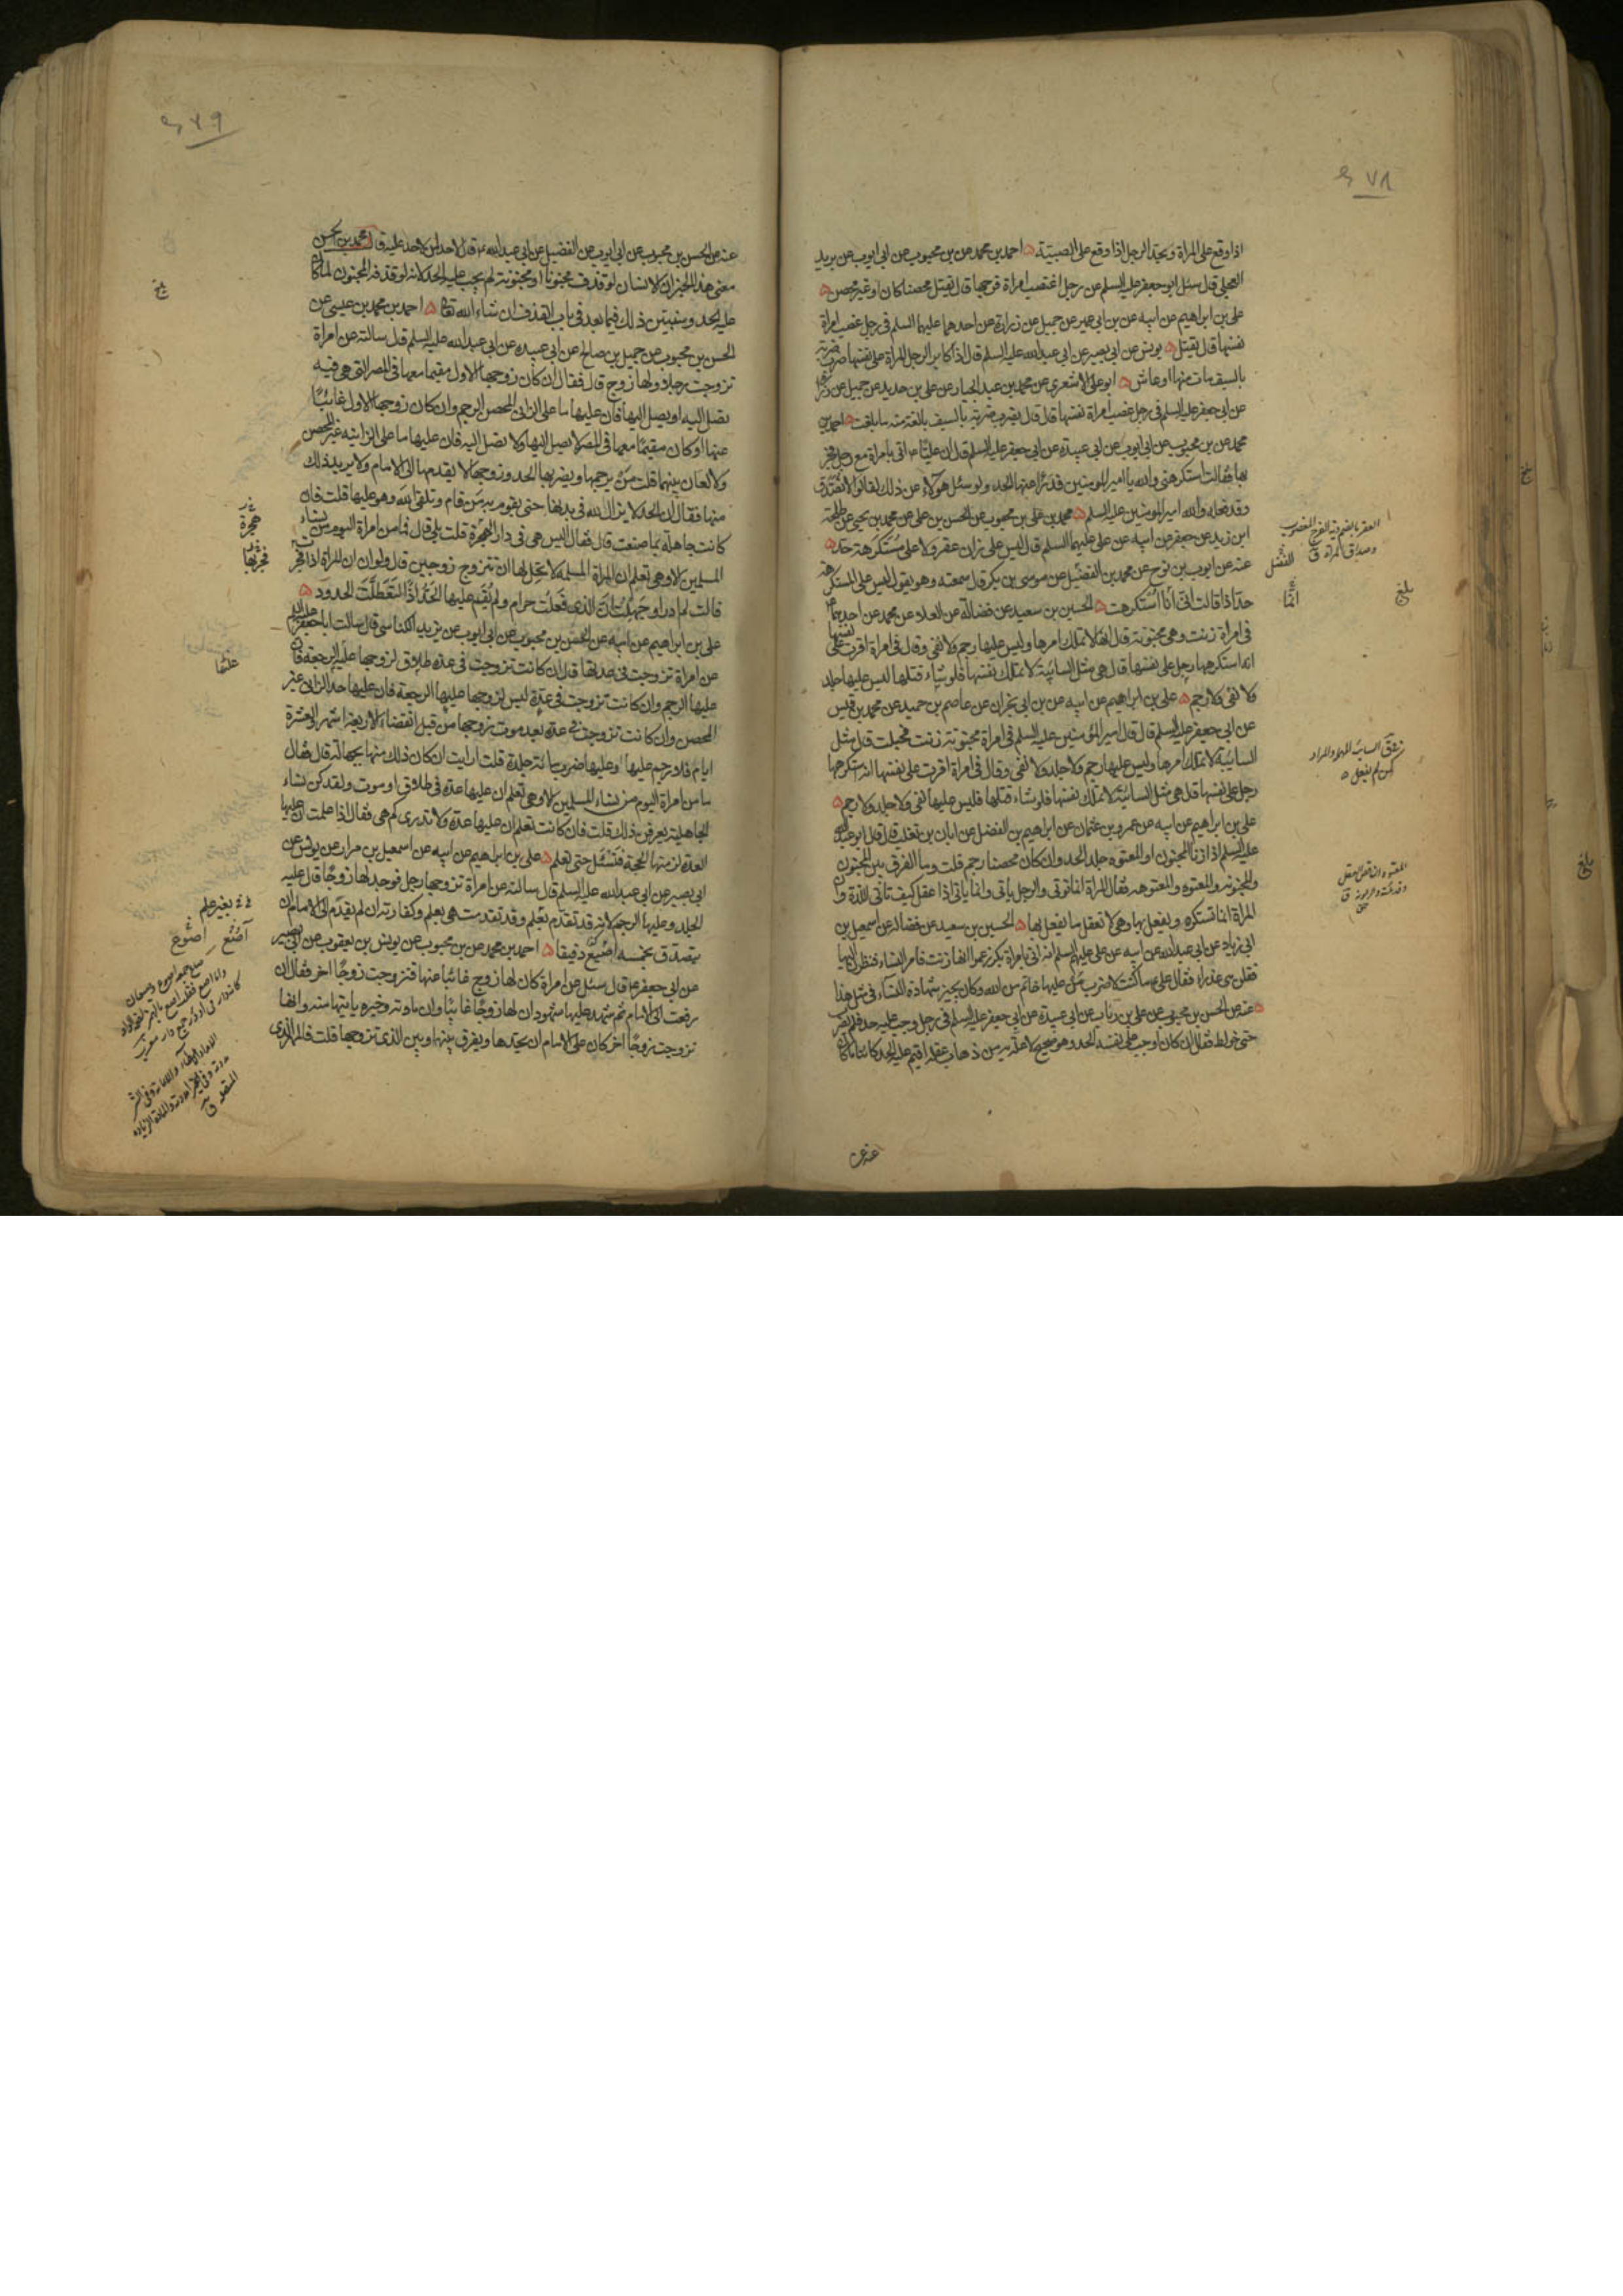 ٤٧٨
اذا وقع على المراة ويحد الرجل اذا وقع على الصبيتة احمد بن محمد عن بن محبوب عن ابى ايوب عن بريد
العجلى قال سئل ابو جعفر عليه السلم عن رجل اغتصب امراة فرجها قال يقتل محصنا كان او غير محصن
على بن ابراهيم عن ابيه عن بن ابى عمير عن جميل عن زرارة عن احدهما عليهما السلم فى رجل غصب امراة
نفسها قال يقتل يونس عن ابى بصير عن ابى عبدالله عليه السلم قال اذا كابر الرجل المراة على نفسها ضرب ضربة
بالسيف مات منها او عاش ابو على الاشعرى عن محمد بن عبد الجبار عن على بن حديد عن جميل عن زرارة
عن ابى جعفر عليه السلم فى رجل غصب امراة نفسها قال قال يضرب ضربة بالسيف بالغة منه ما بلغت احمد بن
محمد عن بن محبوب عن ابى ايوب عن ابى عبيدة عن ابى جعفر عليه السلم قال ان عليا ع اتى بامراة مع رجل فجر
بها فقالت استكرهنى والله يا امير المومنين فدرا عنها الحد ولو سئل هؤلاء عن ذلك لقالوا لا تصدق
وقد فعله والله امير المومنين عليه السلم محمد بن على بن محبوب عن الحسن بن على عن محمد بن يحيى عن طلحة
ابن زيد عن جعفر عن ابيه عن على عليهما السلم قال ليس على زان عقر ولا على مستكرهة حد
عنه عن ايوب بن نوح عن محمد بن الفضيل عن موسى بن بكر قال سمعته وهو يقول ليس على المستكرهة
حد اذا قالت انى انا استكرهت الحسين بن سعيد عن فضالة عن العلا عن محمد عن احدهما ع
فى امراة زنت وهى مجنونة قال انها لا تملك امرها وليس عليها رجم ولا نفى وقال فى امراة اقرت على نفسها
انه استكرهها رجل على نفسها قال هى مثل السائبة لا تملك نفسها فلو شاء قتلها ليس عليها جلد
ولا نفى ولا رجم على بن ابراهيم عن ابيه عن بن ابى نجران عن عاصم بن حميد عن محمد بن قيس
عن ابى جعفر عليه السلم قال قال امير المؤمنين عليه السلم فى امراة مجنونة زنت فحبلت قال مثل
السائبة لا تملك امرها وليس عليها رجم ولا جلد ولا نفى وقال فى امراة اقرت على نفسها انه استكرهها
رجل على نفسها قال هى مثل السائبة لا تملك نفسها فلو شاء قتلها فليس عليها نفى ولا جلد ولا رجم
على بن ابراهيم عن ابيه عن عمرو بن عثمان عن ابراهيم بن الفضل عن ابان بن تغلب قال قال ابو عبدالله
عليه السلم اذا زنا المجنون او المعتوه جلد الحد وان كان محصنا رجم قلت وما الفرق بين المجنون
والمجنونه والمعتوه والمعتوهه فقال المراة انما توتى والرجل ياتى وانما ياتى اذا عقل كيف تاتى اللذة وان
المراة انما تستكره ويفعل بها وهى لا تعقل ما يفعل بها الحسين بن سعيد عن فضالة عن اسمعيل بن
ابى زياد عن ابى عبدالله عن ابيه عن على عليهم السلم انه اتى بامراة بكر زعموا انها زنت فامر النساء فنظرن اليها
فقلن هى عذراء فقال على ع ما كنت لاضرب من عليها خاتم من الله وكان يجيز شهادة النساء فى مثل هذا
عنه عن الحسن بن محبوب عن على بن رئاب عن ابى عبيدة عن ابى جعفر عليه السلم فى رجل وجب عليه حد فلم يضرب
حتى خولط فقال ان كان اوجب على نفسه الحد وهو صحيح لا علة به من ذهاب عقله اقيم عليه الحد كائنا ما كان
العقر بالضم دية الفرج المغصوب
وصداق المراة ق
انما
بلغ
المعتوه الناقص العقل
٤٧٩
عنه عن الحسن بن محبوب عن ابى ايوب عن الفضيل عن ابى عبدالله ع قال لا حد لمن لا حد عليه قال محمد بن الحسن
معنى هذا الخبر ان الانسان لو قذف مجنونا او مجنونة لم يجب عليه الحد لانه لو قذفه المجنون لما كان
عليه الحد وسنبين ذلك فيما بعد فى باب القذف ان شاء الله تعا احمد بن محمد بن عيسى عن
الحسن بن محبوب عن جميل بن صالح عن ابى عبيده عن ابى عبدالله عليه السلم قال سالته عن امراة
تزوجت رجلا ولها زوج قال فقال ان كان زوجها الاول مقيما معها فى المصر التى هى فيه
تصل اليه او يصل اليها فان عليها ما على الزانى المحصن الرجم وان كان زوجها الاول غائبا
عنها او كان مقيما معها فى المصر لا يصل اليها ولا تصل اليه فان عليها ما على الزانيه غير المحصن
ولا لعان بينهما قلت من يرجمها ويضربها الحد وزوجها لا يقدمها الى الامام ولا يريد ذلك
منها فقال ان الحد لا يزال لله فى بدنها حتى يقوم به من قام وتلقى الله وهو عليها قلت فان
كانت جاهلة بما صنعت قال فقال اليس هى فى دار الهجرة قلت بلى قال فما من امراة اليوم من نساء
المسلمين الا وهى تعلم ان المراة المسلمه لا يحل لها ان تتزوج زوجين قال ولو ان المراة اذا فجرت
قالت لم ادر او جهلت ان الذى فعلت حرام ولم يقم عليها الحد اذا لتعطلت الحدود
على بن ابراهيم عن ابيه عن الحسن بن محبوب عن ابى ايوب عن يزيد الكناسى قال سالت ابا جعفر عليه السلم
عن امراة تزوجت فى عدتها قال ان كانت تزوجت فى عدة طلاق لزوجها عليها الرجعة فان
عليها الرجم وان كانت تزوجت فى عدة ليس لزوجها عليها الرجعة فان عليها حد الزانى غير
المحصن وان كانت تزوجت فى عدة بعد موت زوجها من قبل انقضاء الاربعة اشهر والعشرة
ايام فلا رجم عليها وعليها ضرب مائة جلدة قلت ارايت ان كان ذلك منها بجهالة قال فقال
ما من امراة اليوم من نساء المسلمين الا وهى تعلم ان عليها عدة فى طلاق او موت ولقد كن نساء
الجاهلية يعرفن ذلك قلت فان كانت تعلم ان عليها عدة ولا تدرى كم هى فقال اذا علمت ان عليها
العدة لزمتها الحجة فتسئل حتى تعلم على بن ابراهيم عن ابيه عن اسمعيل بن مرار عن يونس عن
ابى بصير عن ابى عبدالله عليه السلم قال سالته عن امراة تزوجها رجل فوجد لها زوجا قال عليه
الجلد وعليها الرجم لانه قد تقدم بعلم وقد تقدمت هى بعلم وكفارته ان لم يقدم الى الامام ان
يتصدق بخمسه اصيع دقيقا احمد بن محمد عن بن محبوب عن يونس بن يعقوب عن ابى بصير
عن ابى جعفر ع قال سئل عن امراة كان لها زوج غائبا عنها فتزوجت زوجا اخر فقال ان
رفعت الى الامام ثم شهد عليها شهود ان لها زوجا غائبا وان مادته وخبره ياتيها منه وانها
تزوجت زوجا اخر كان على الامام ان يحدها ويفرق بينها وبين الذى تزوجها قلت فالمهر الذى
هجرة
بغير علم
آصع
اصوع